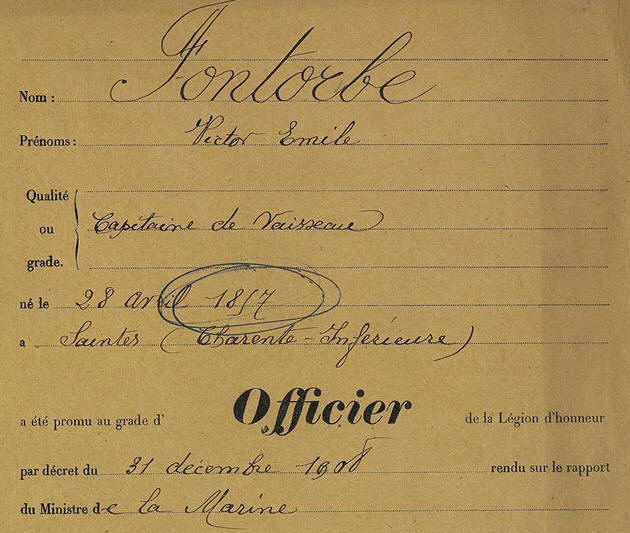 Nom : Fontorbe
Prénoms : Victor Emile
Qualité
ou Capitaine de Vaisseau
grade.
né le 28 avril 1857
a Saintes (Charente-Inferieure)
a été promu au grade d' Officier de la Légion d'honneur
par décret du 31 décembre 1908 rendu sur le rapport
du Ministre de la Marine